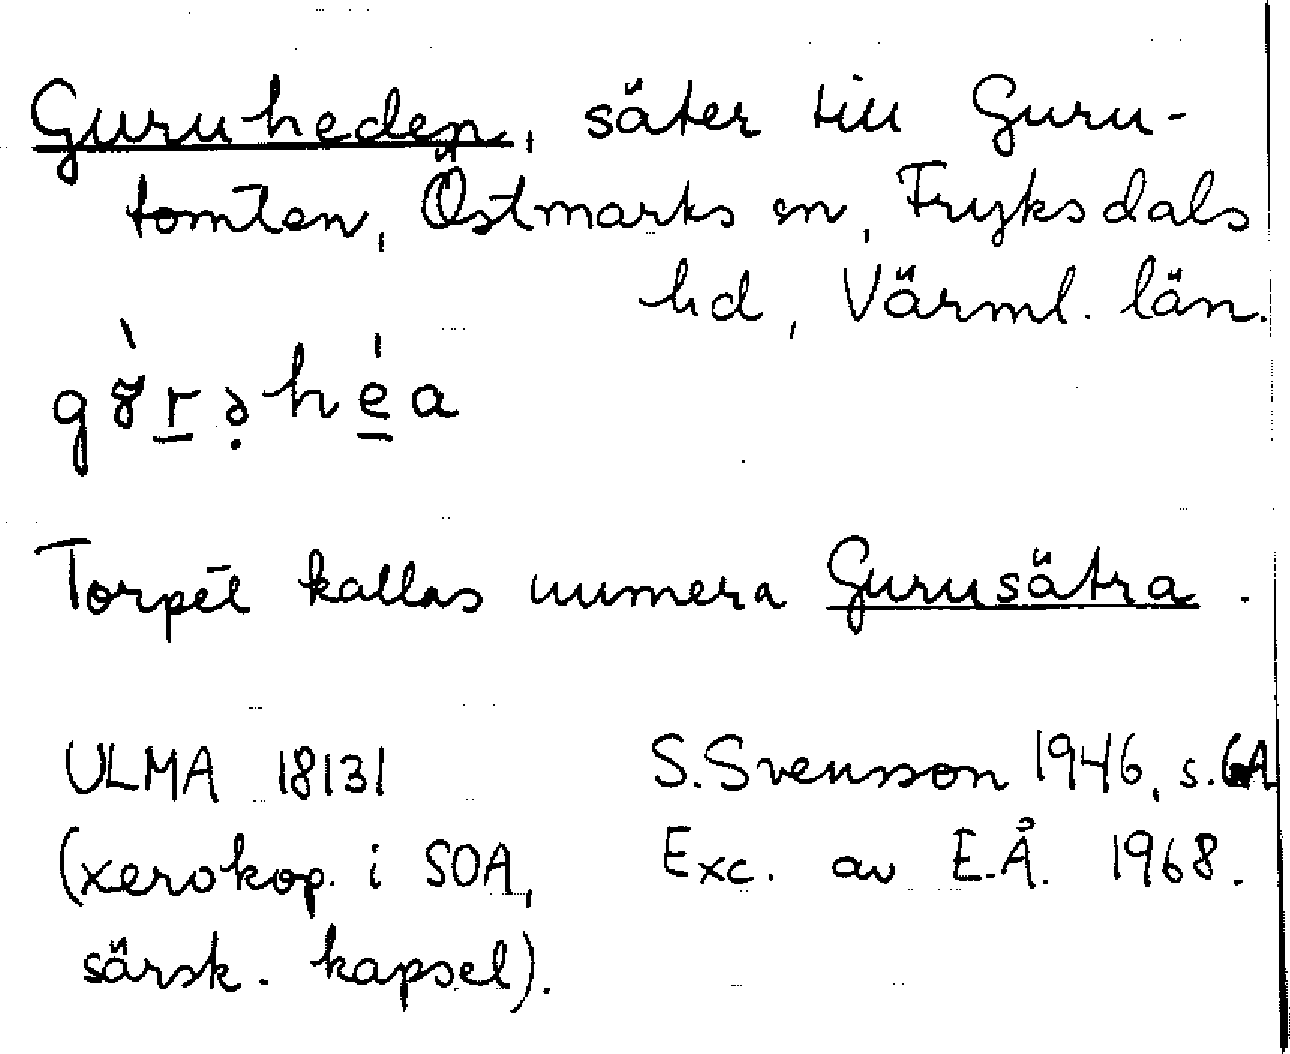 Guruheden, säter till Guru-
tomten, Östmarks sn, Fryksdals
hd, Värml. län.
Torpet kallas numera Gurusätra.
ULMA 18131 S. Svensson 1946, s.
(xerokop. i SOA, Exc. av E.Å. 1968.
särsk. kapsel).